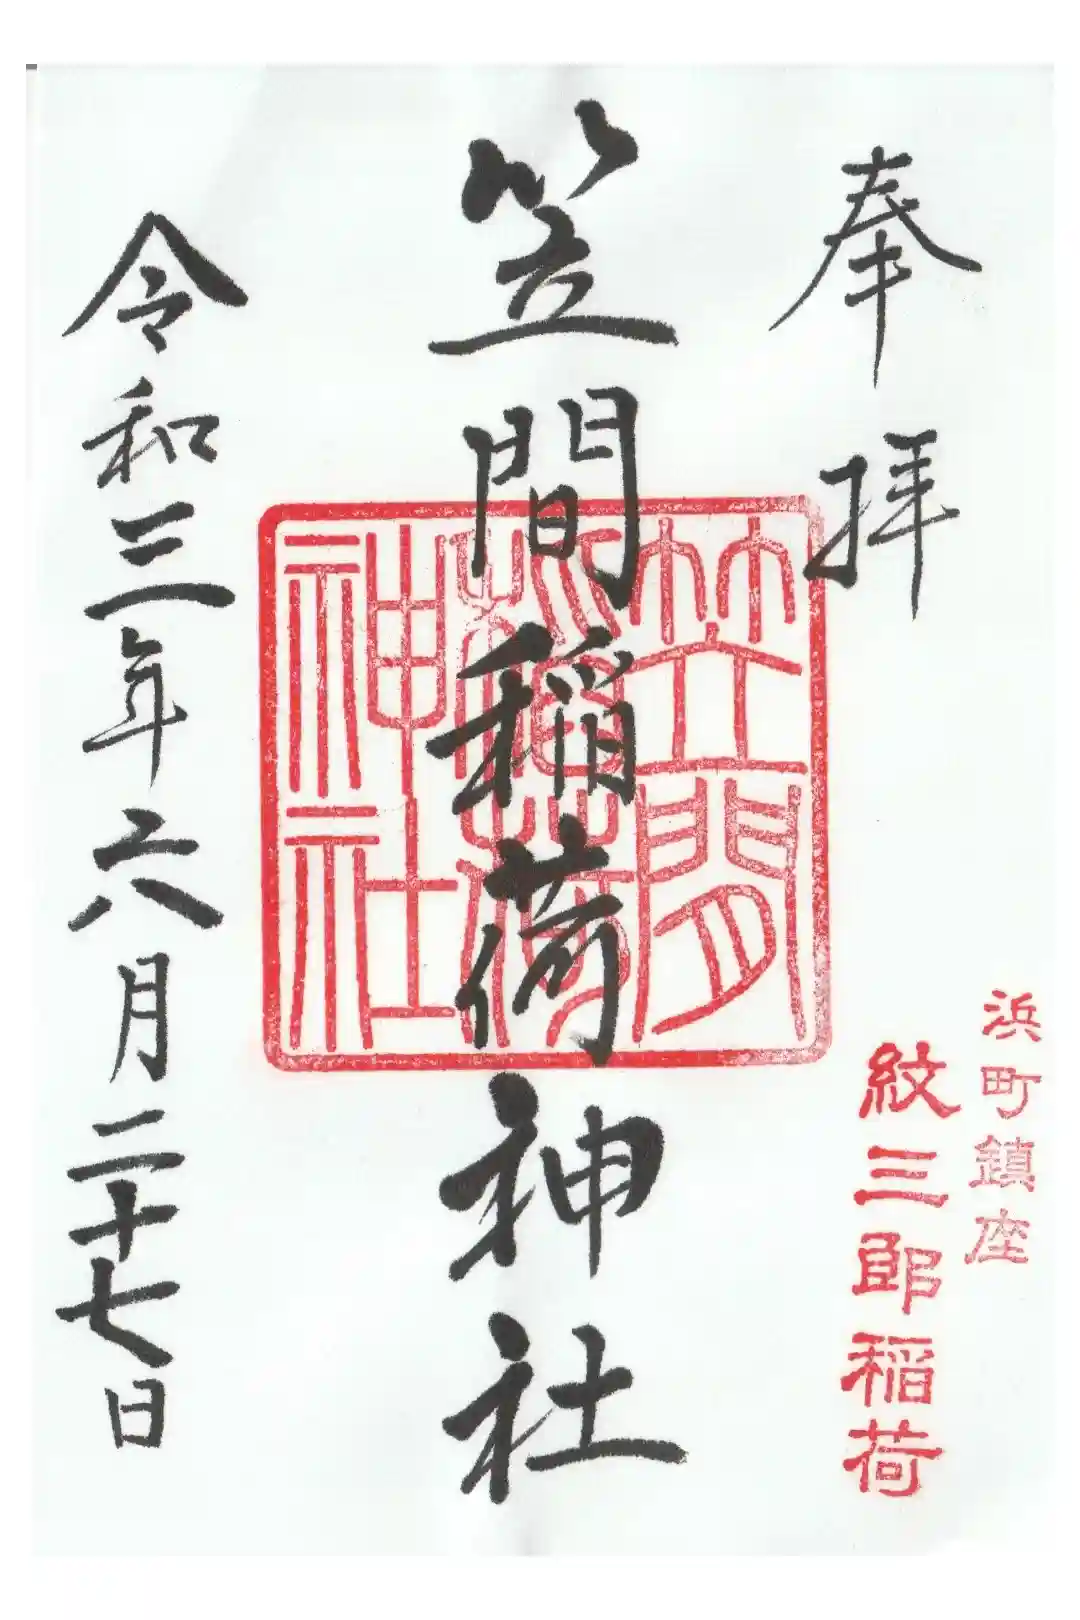 奉拝
浜町鎮座
紋三郎稲荷
笠間稲荷神社
笠間
稲荷
神社
令和三年六月二十七日